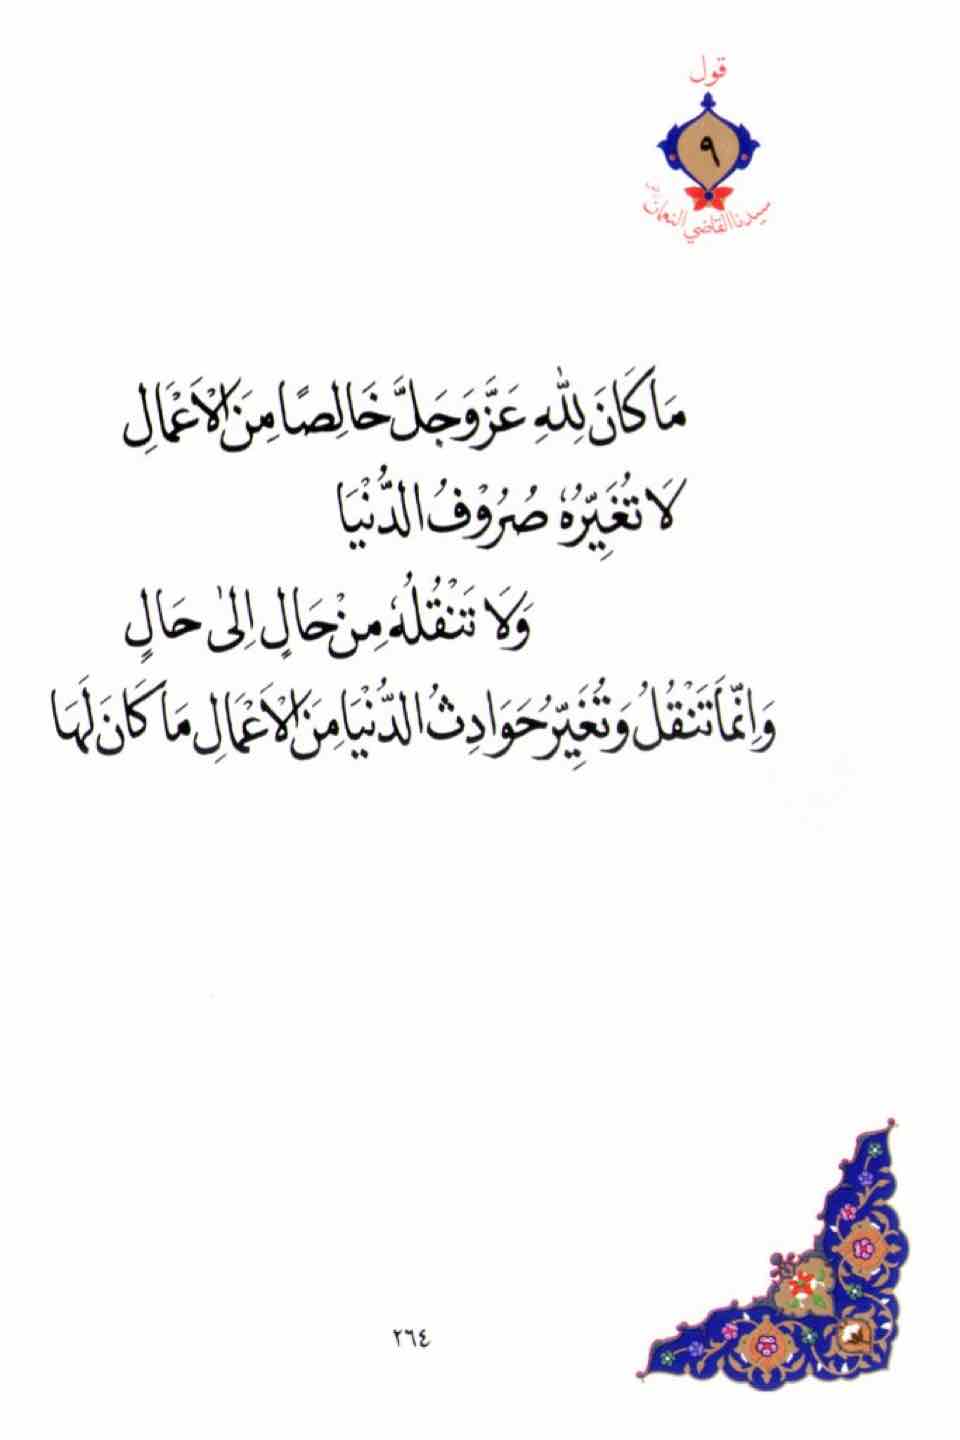 قول
٩
سيدنا القاضي النعمان
مَا كَانَ لِلّٰهِ عَزَّ وَجَلَّ خَالِصًا مِنَ الْاَعْمَالِ
لَا تُغَيِّرُهٗ صُرُوْفُ الدُّنْيَا
وَلَا تَنْقُلُهٗ مِنْ حَالٍ اِلٰى حَالٍ
وَاِنَّمَا تَنْقُلُ وَتُغَيِّرُ حَوَادِثُ الدُّنْيَا مِنَ الْاَعْمَالِ مَا كَانَ لَهَا
٢٦٤